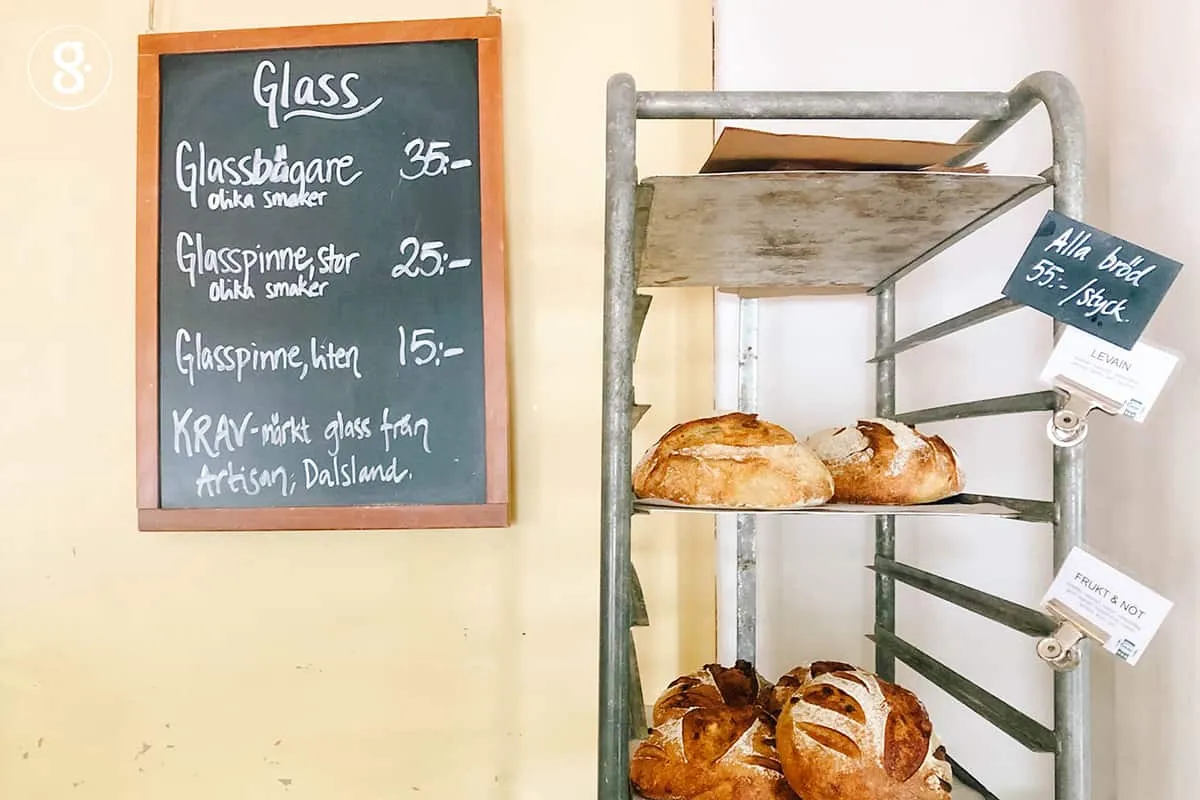 g.
Glass
Glassbägare 35:-
Olika smaker
Glasspinne, stor 25:-
Olika smaker
Glasspinne, liten 15:-
KRAV-märkt glass från
Artisan, Dalsland.
Alla bröd
55:-/styck.
LEVAIN
FRUKT & NÖT